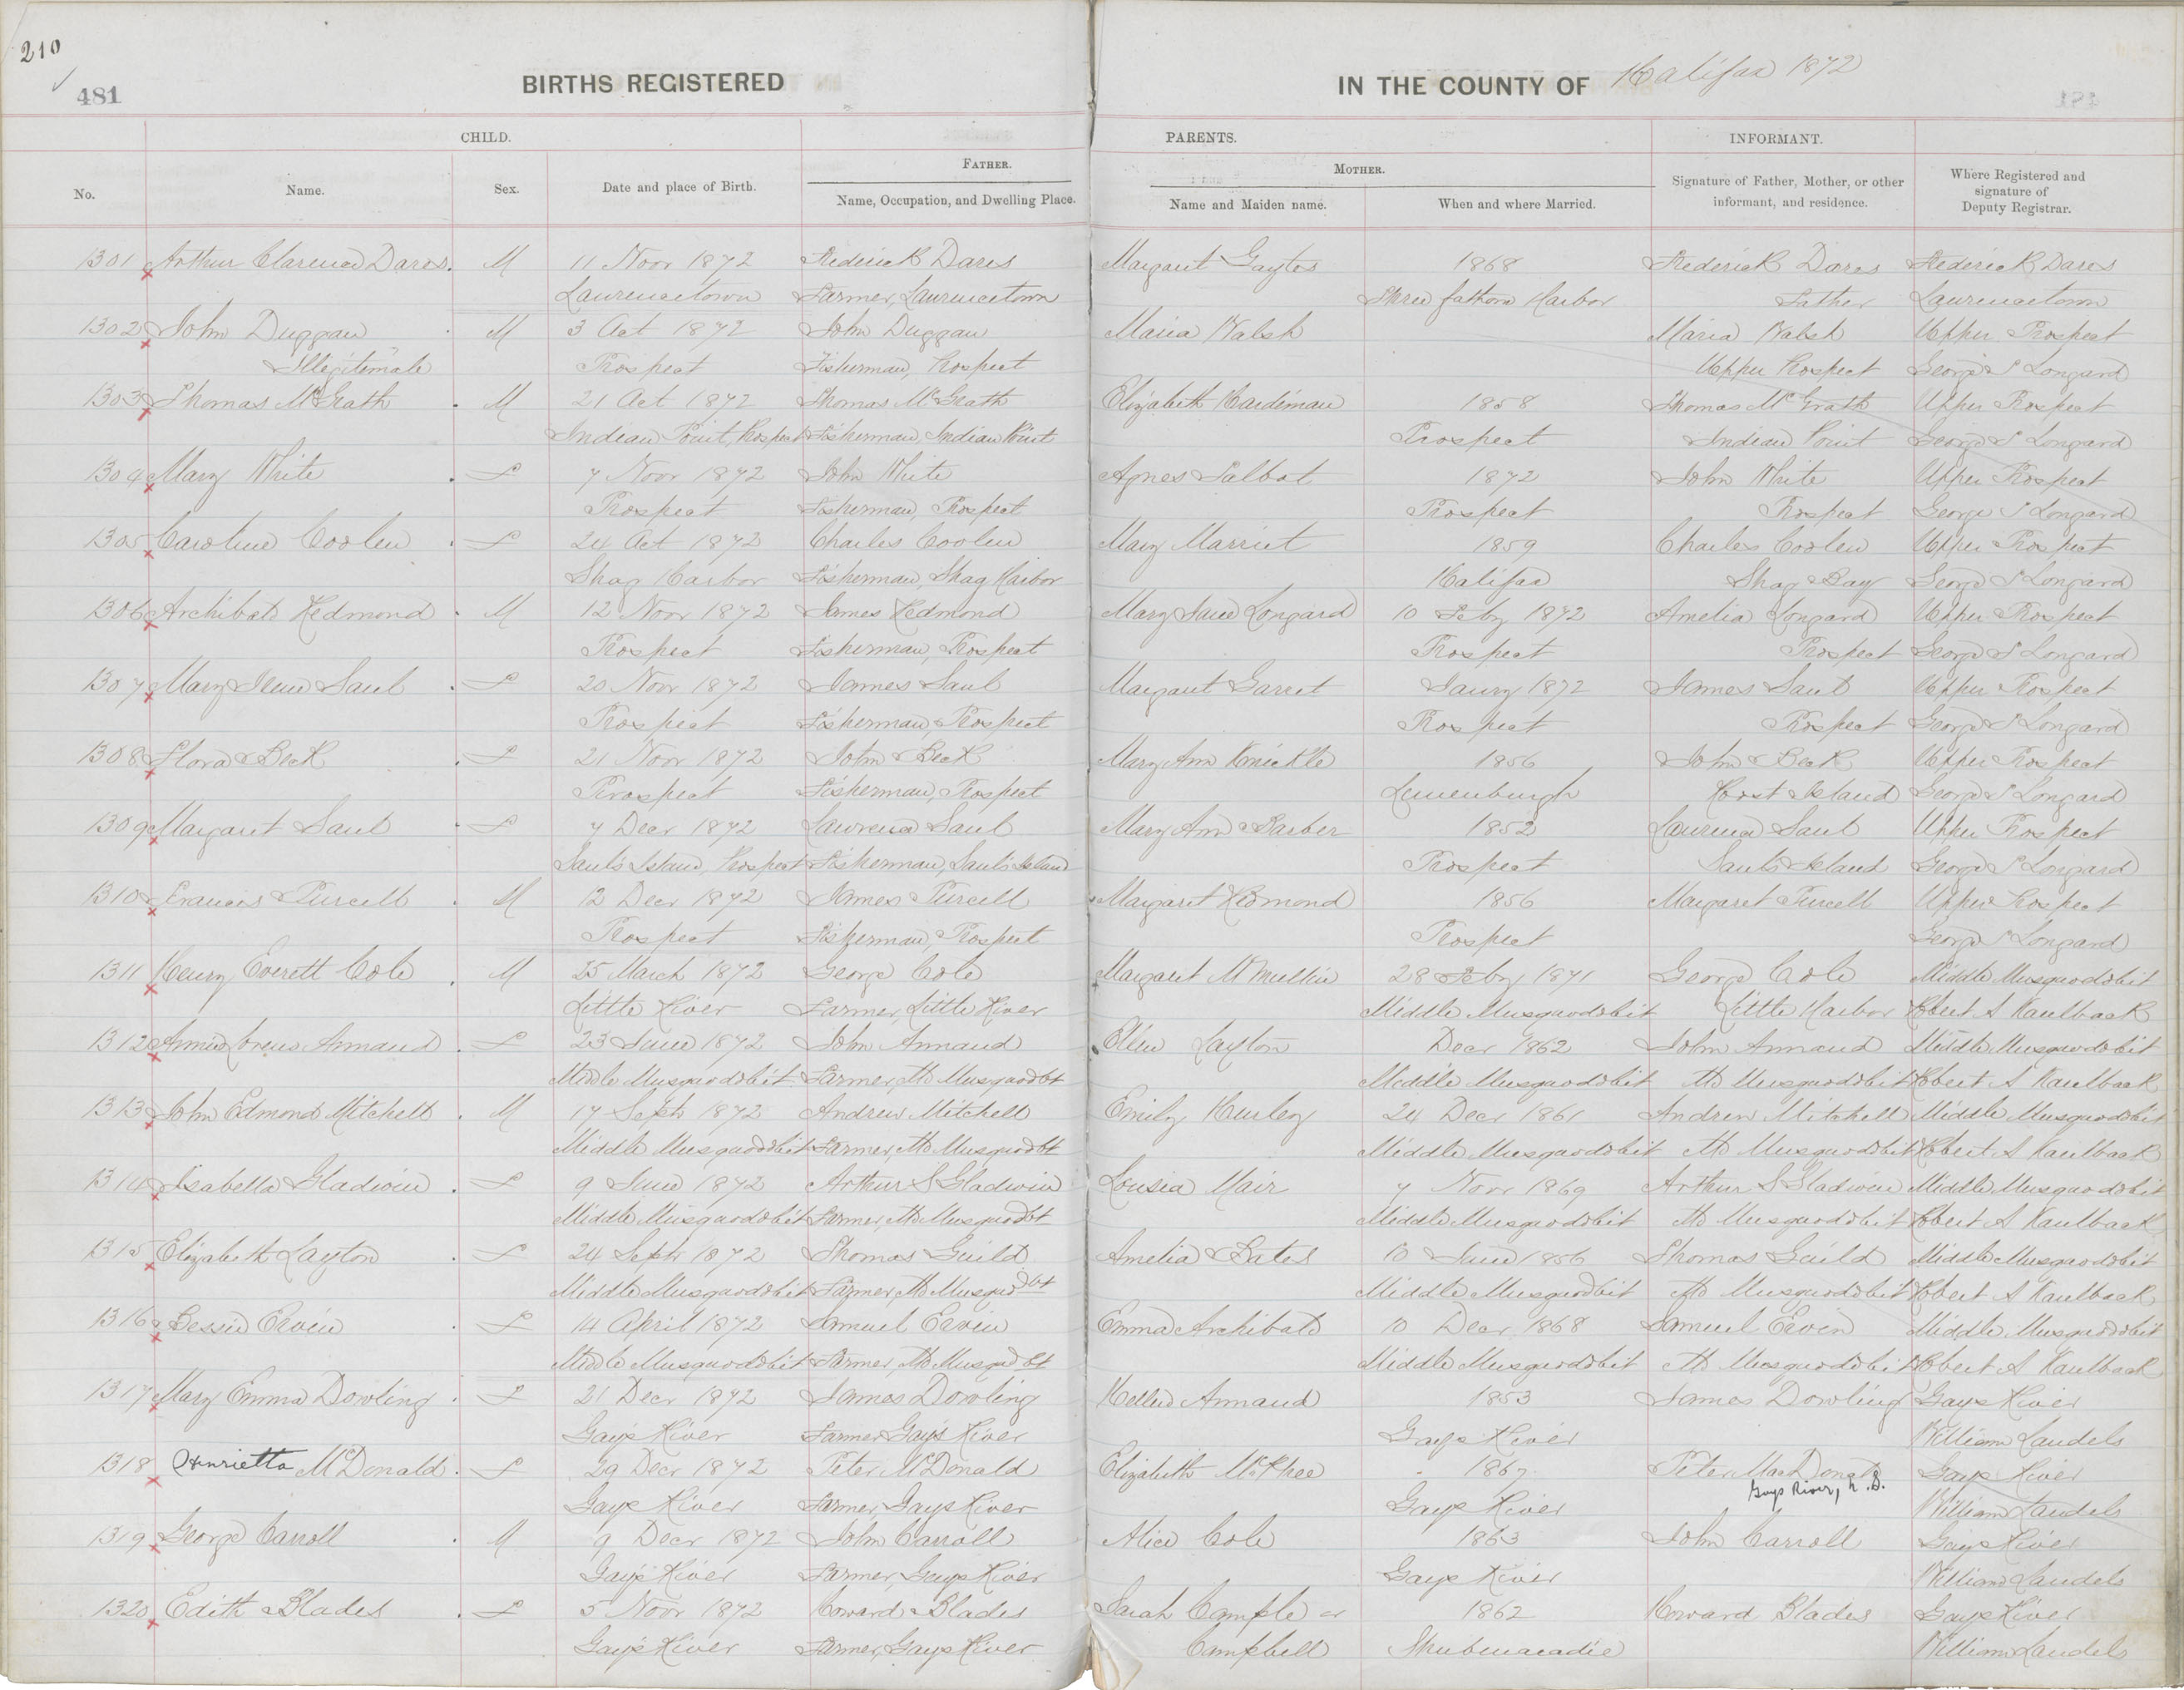 210
481
BIRTHS REGISTERED IN THE COUNTY OF Halifax 1872
CHILD. PARENTS. INFORMANT.
No. Name. Sex. Date and place of Birth. FATHER. Name, Occupation, and Dwelling Place. MOTHER. Name and Maiden name. When and where Married. Signature of Father, Mother, or other informant, and residence. Where Registered and signature of Deputy Registrar.
1301 Arthur Clarence Dares M 11 Novr 1872 Frederick Dares Margaret Gaytes 1868 Frederick Dares Frederick Dares
Laurencetown Farmer, Laurencetown Three fathom Harbor Father Laurencetown
1302 John Duggan M 3 Oct 1872 John Duggan Maria Walsh Maria Walsh Upper Prospect
Illegitimate Prospect Fisherman, Prospect Upper Prospect George S Longard
1303 Thomas McGrath M 21 Oct 1872 Thomas McGrath Elizabeth Hardiman 1858 Thomas McGrath Upper Prospect
Indian Point, Prospect Fisherman, Indian Point Prospect Indian Point George S Longard
1304 Mary White F 7 Novr 1872 John White Agnes Talbot 1872 John White Upper Prospect
Prospect Fisherman, Prospect Prospect Prospect George S Longard
1305 Caroline Coolen F 24 Oct 1872 Charles Coolen Mary Marriet 1859 Charles Coolen Upper Prospect
Shag Harbor Fisherman, Shag Harbor Halifax Shag Bay George S Longard
1306 Archibald Redmond M 12 Novr 1872 James Redmond Mary Jane Longard 10 Feby 1872 Amelia Longard Upper Prospect
Prospect Fisherman, Prospect Prospect Prospect George S Longard
1307 Mary Ilene Saul F 20 Novr 1872 James Saul Margaret Garret Jany 1872 James Saul Upper Prospect
Prospect Fisherman, Prospect Prospect Prospect George S Longard
1308 Flora Beck F 21 Novr 1872 John Beck Mary Ann Knickle 1856 John Beck Upper Prospect
Prospect Fisherman, Prospect Lunenburgh Host Island George S Longard
1309 Margaret Saul F 7 Decr 1872 Lawrence Saul Mary Ann Barber 1852 Laurence Saul Upper Prospect
Saul's Island, Prospect Fisherman, Saul's Island Prospect Saul's Island George S Longard
1310 Francis Purcell M 12 Decr 1872 James Purcell Margaret Redmond 1856 Margaret Purcell Upper Prospect
Prospect Fisherman, Prospect Prospect George S Longard
1311 Henry Everett Cole M 25 March 1872 George Cole Margaret McMullin 28 Feby 1871 George Cole Middle Musquodobit
Little River Farmer, Little River Middle Musquodobit Little Harbor Robert A Kaulback
1312 Annie Lorena Annand F 23 June 1872 John Annand Ellen Layton Decr 1862 John Annand Middle Musquodobit
Middle Musquodobit Farmer, M Musquodbt Middle Musquodobit M Musquodobit Robert A Kaulback
1313 John Edmond Mitchell M 17 Sept 1872 Andrew Mitchell Emily Hurley 24 Decr 1861 Andrew Mitchell Middle Musquodobit
Middle Musquodobit Farmer, M Musquodbt Middle Musquodobit M Musquodobit Robert A Kaulback
1314 Isabella Gladwin F 9 June 1872 Arthur S Gladwin Lousia Mair 7 Novr 1869 Arthur S Gladwin Middle Musquodobit
Middle Musquodobit Farmer, M Musquodbt Middle Musquodobit M Musquodobit Robert A Kaulback
1315 Elizabeth Layton F 24 Septr 1872 Thomas Guild Amelia Bates 10 June 1856 Thomas Guild Middle Musquodobit
Middle Musquodobit Farmer, M Musquodbt Middle Musquodobit M Musquodobit Robert A Kaulback
1316 Bessie Ervin F 14 April 1872 Samuel Ervin Emma Archibald 10 Decr 1868 Samuel Ervin Middle Musquodobit
Middle Musquodobit Farmer, M Musquodbt Middle Musquodobit M Musquodobit Robert A Kaulback
1317 Mary Emma Dowling F 21 Decr 1872 James Dowling Nellie Annand 1853 James Dowling Gays River
Gay's River Farmer Gay's River Gays River William Landels
1318 Henrietta McDonald F 29 Decr 1872 Peter McDonald Elizabeth McPhee 1867 Peter MacDonald Gays River
Gays River Farmer, Gays River Gays River Gays River, N.S. William Landels
1319 George Carroll M 9 Decr 1872 John Carroll Alice Cole 1863 John Carroll Gays River
Gays River Farmer, Gays River Gays River William Landels
1320 Edith Blades F 5 Novr 1872 Howard Blades Sarah Cample or 1862 Howard Blades Gays River
Gays River Farmer, Gays River Campbell Shubenacadie William Landels